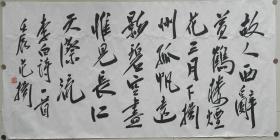 故人西辭
黃鶴樓煙
花三月下揚
州孤帆遠
影碧空盡
惟見長江
天際流
李白詩一首